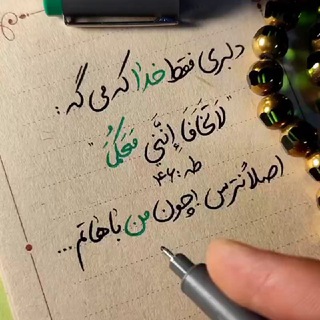 دلبری فقط خدا که می گه:
"لَا تَخَافَا إِنَّنِي مَعَكُمَا"
طه:۴۶
اصلاً نترس! چون من باهاتم...